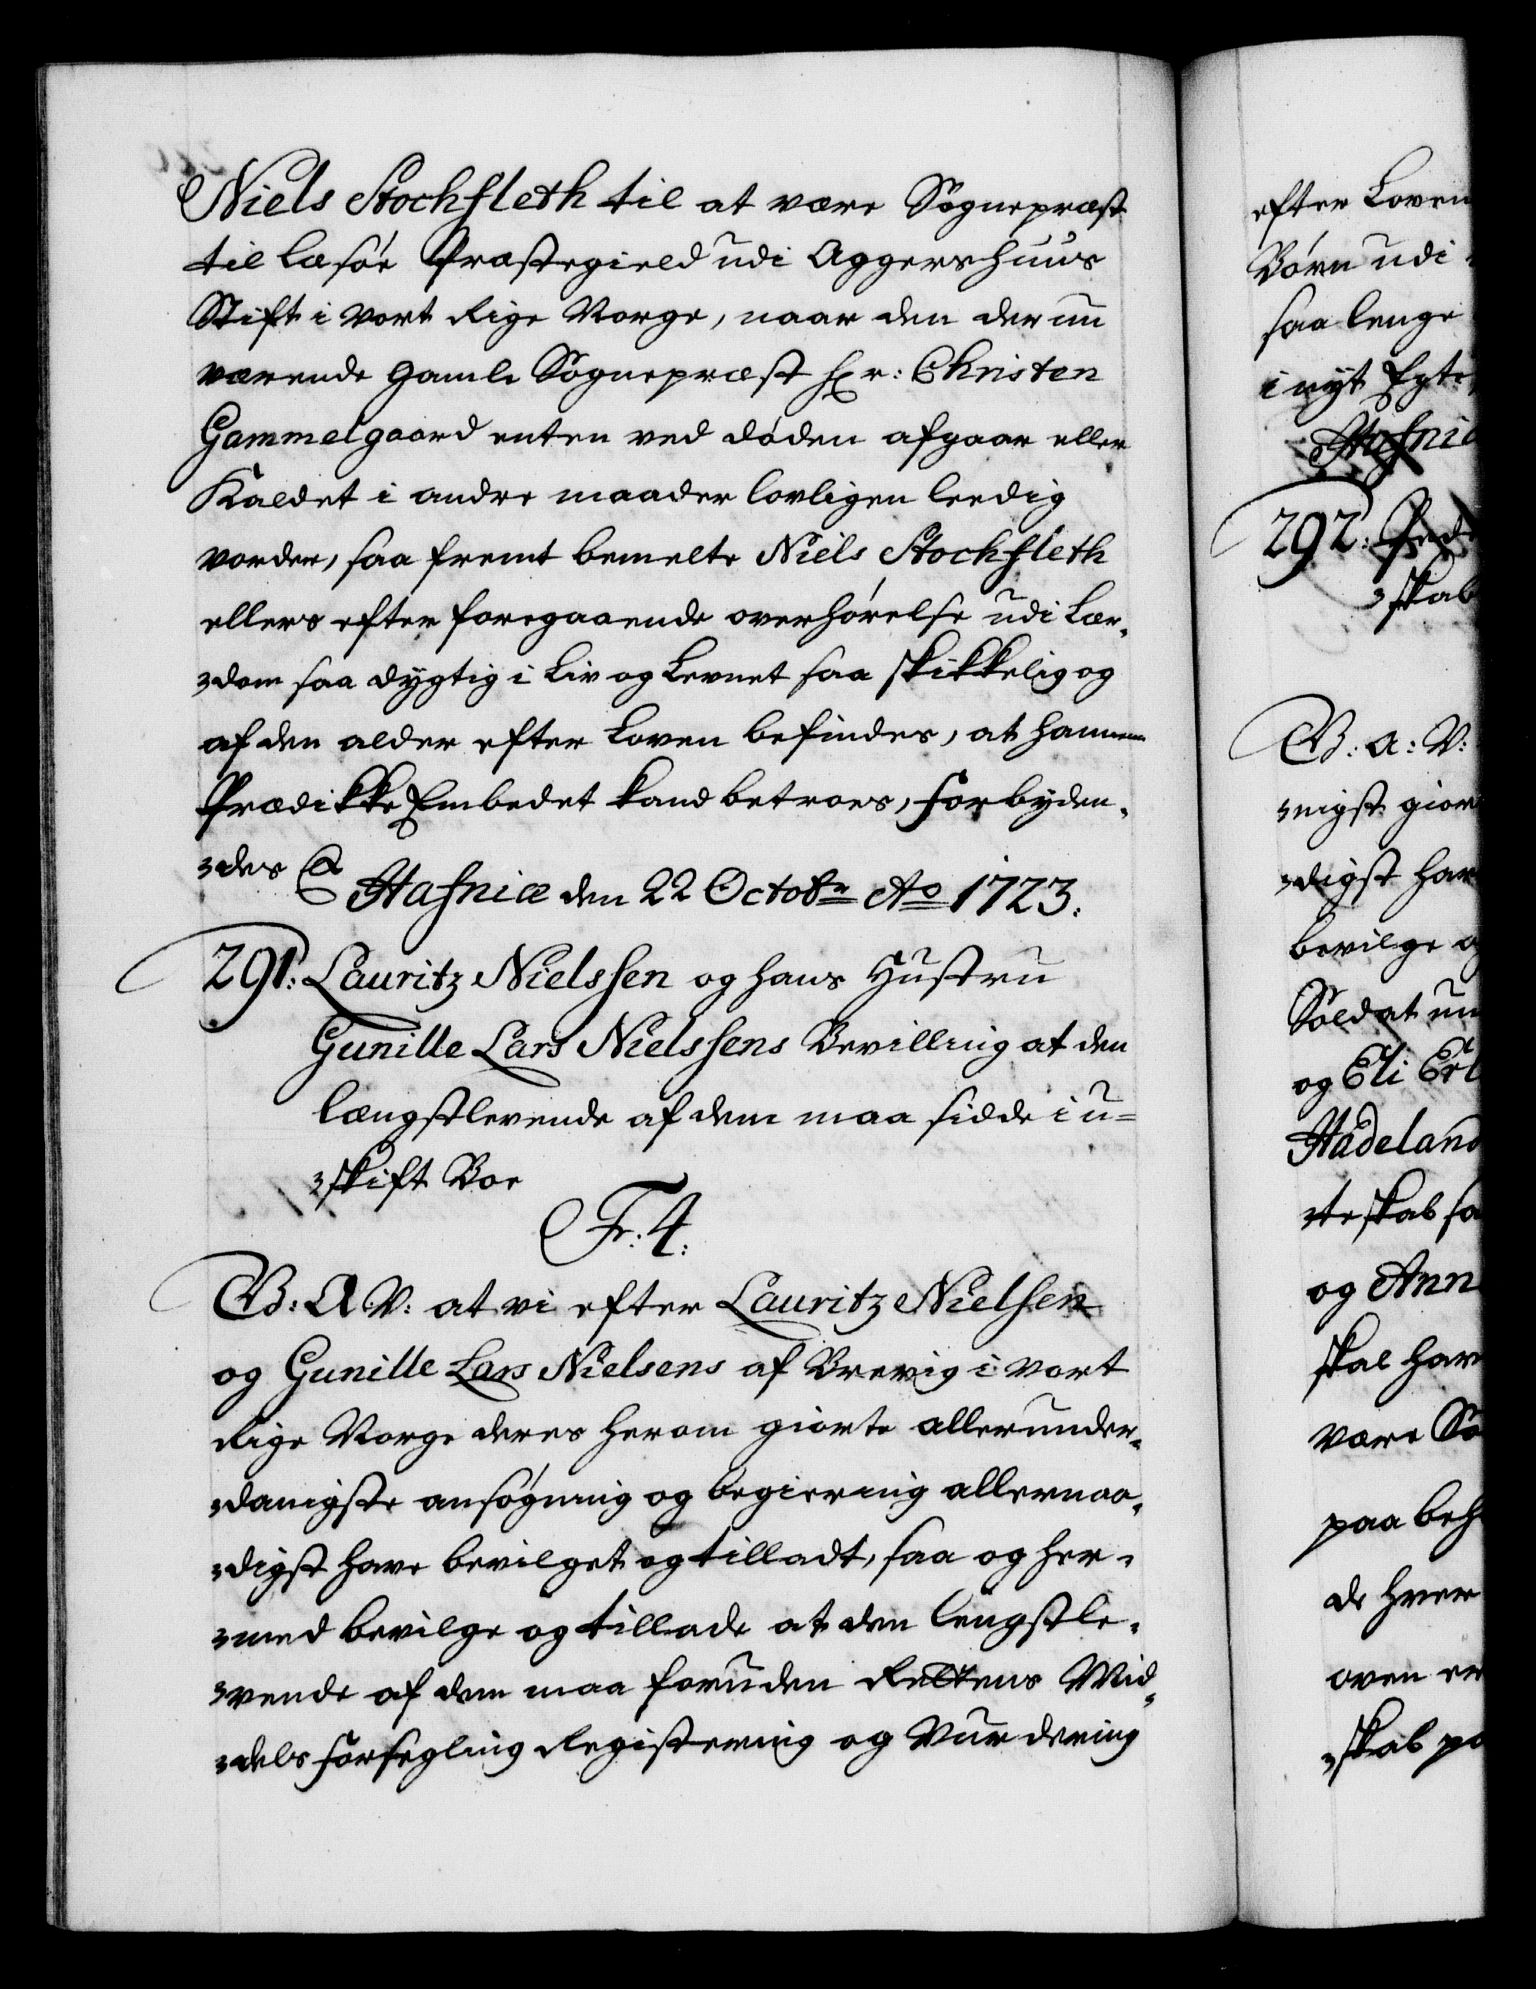 Niels Stochfleth til at være Sognepræst
til Læsöe Præstegield udi Aggershuus
Stift i Vort Rige Norge, naar den der nu
værende gamle Sognepræst Hr: Christen
Gammelgaard enten ved døden afgaar eller
Kaldet i andre maader lovligen leedig
vorder, saa fremt bemelte Niels Stochfleth
ellers efter foregaaende overhørelse udi Lær-
dom saa dygtig i Liv og Levnet saa skikkelig og
af den alder efter Loven befindes, at hannem
PrædikkeEmbedet kand betroes, forbyden-
des &
Hafniæ den 22 Octobr Ao 1723.
291: Lauritz Nielssen og hans Hustru
Gunille Lars Nielssens Bevilling at den
længstlevende af dem maa sidde i u-
skift Boe
Fr: 4:
G: A V: at vi efter Lauritz Nielsen
og Gunille Lars Nielsens af Brevig i Vort
Rige Norge deres herom giorte allerunder-
danigste ansøgning og begiering allernaa-
digst have bevilget og tilladt, saa og her-
med bevilge og tillade at den lengstle-
vende af dem maa foruden Rettens Mid-
dels forsegling Registering og Vurdering
efter Loven
Börn udi
saa lenge
i nyt Egte
Hafnia
292:
skab
G: A: V:
nigst gior
digst hav
bevilge o
Soldat un
og Eli Erl
Hadeland
teskab sa
og Ann
skal hav
være Sö
paa beh
de hver
oven er
skab pa